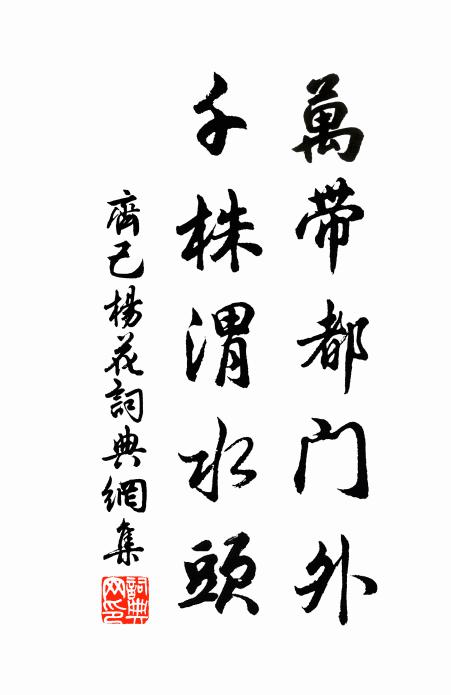 萬帶都门外
千株渭水頭
齊己楊花詞典網集
詞典网印